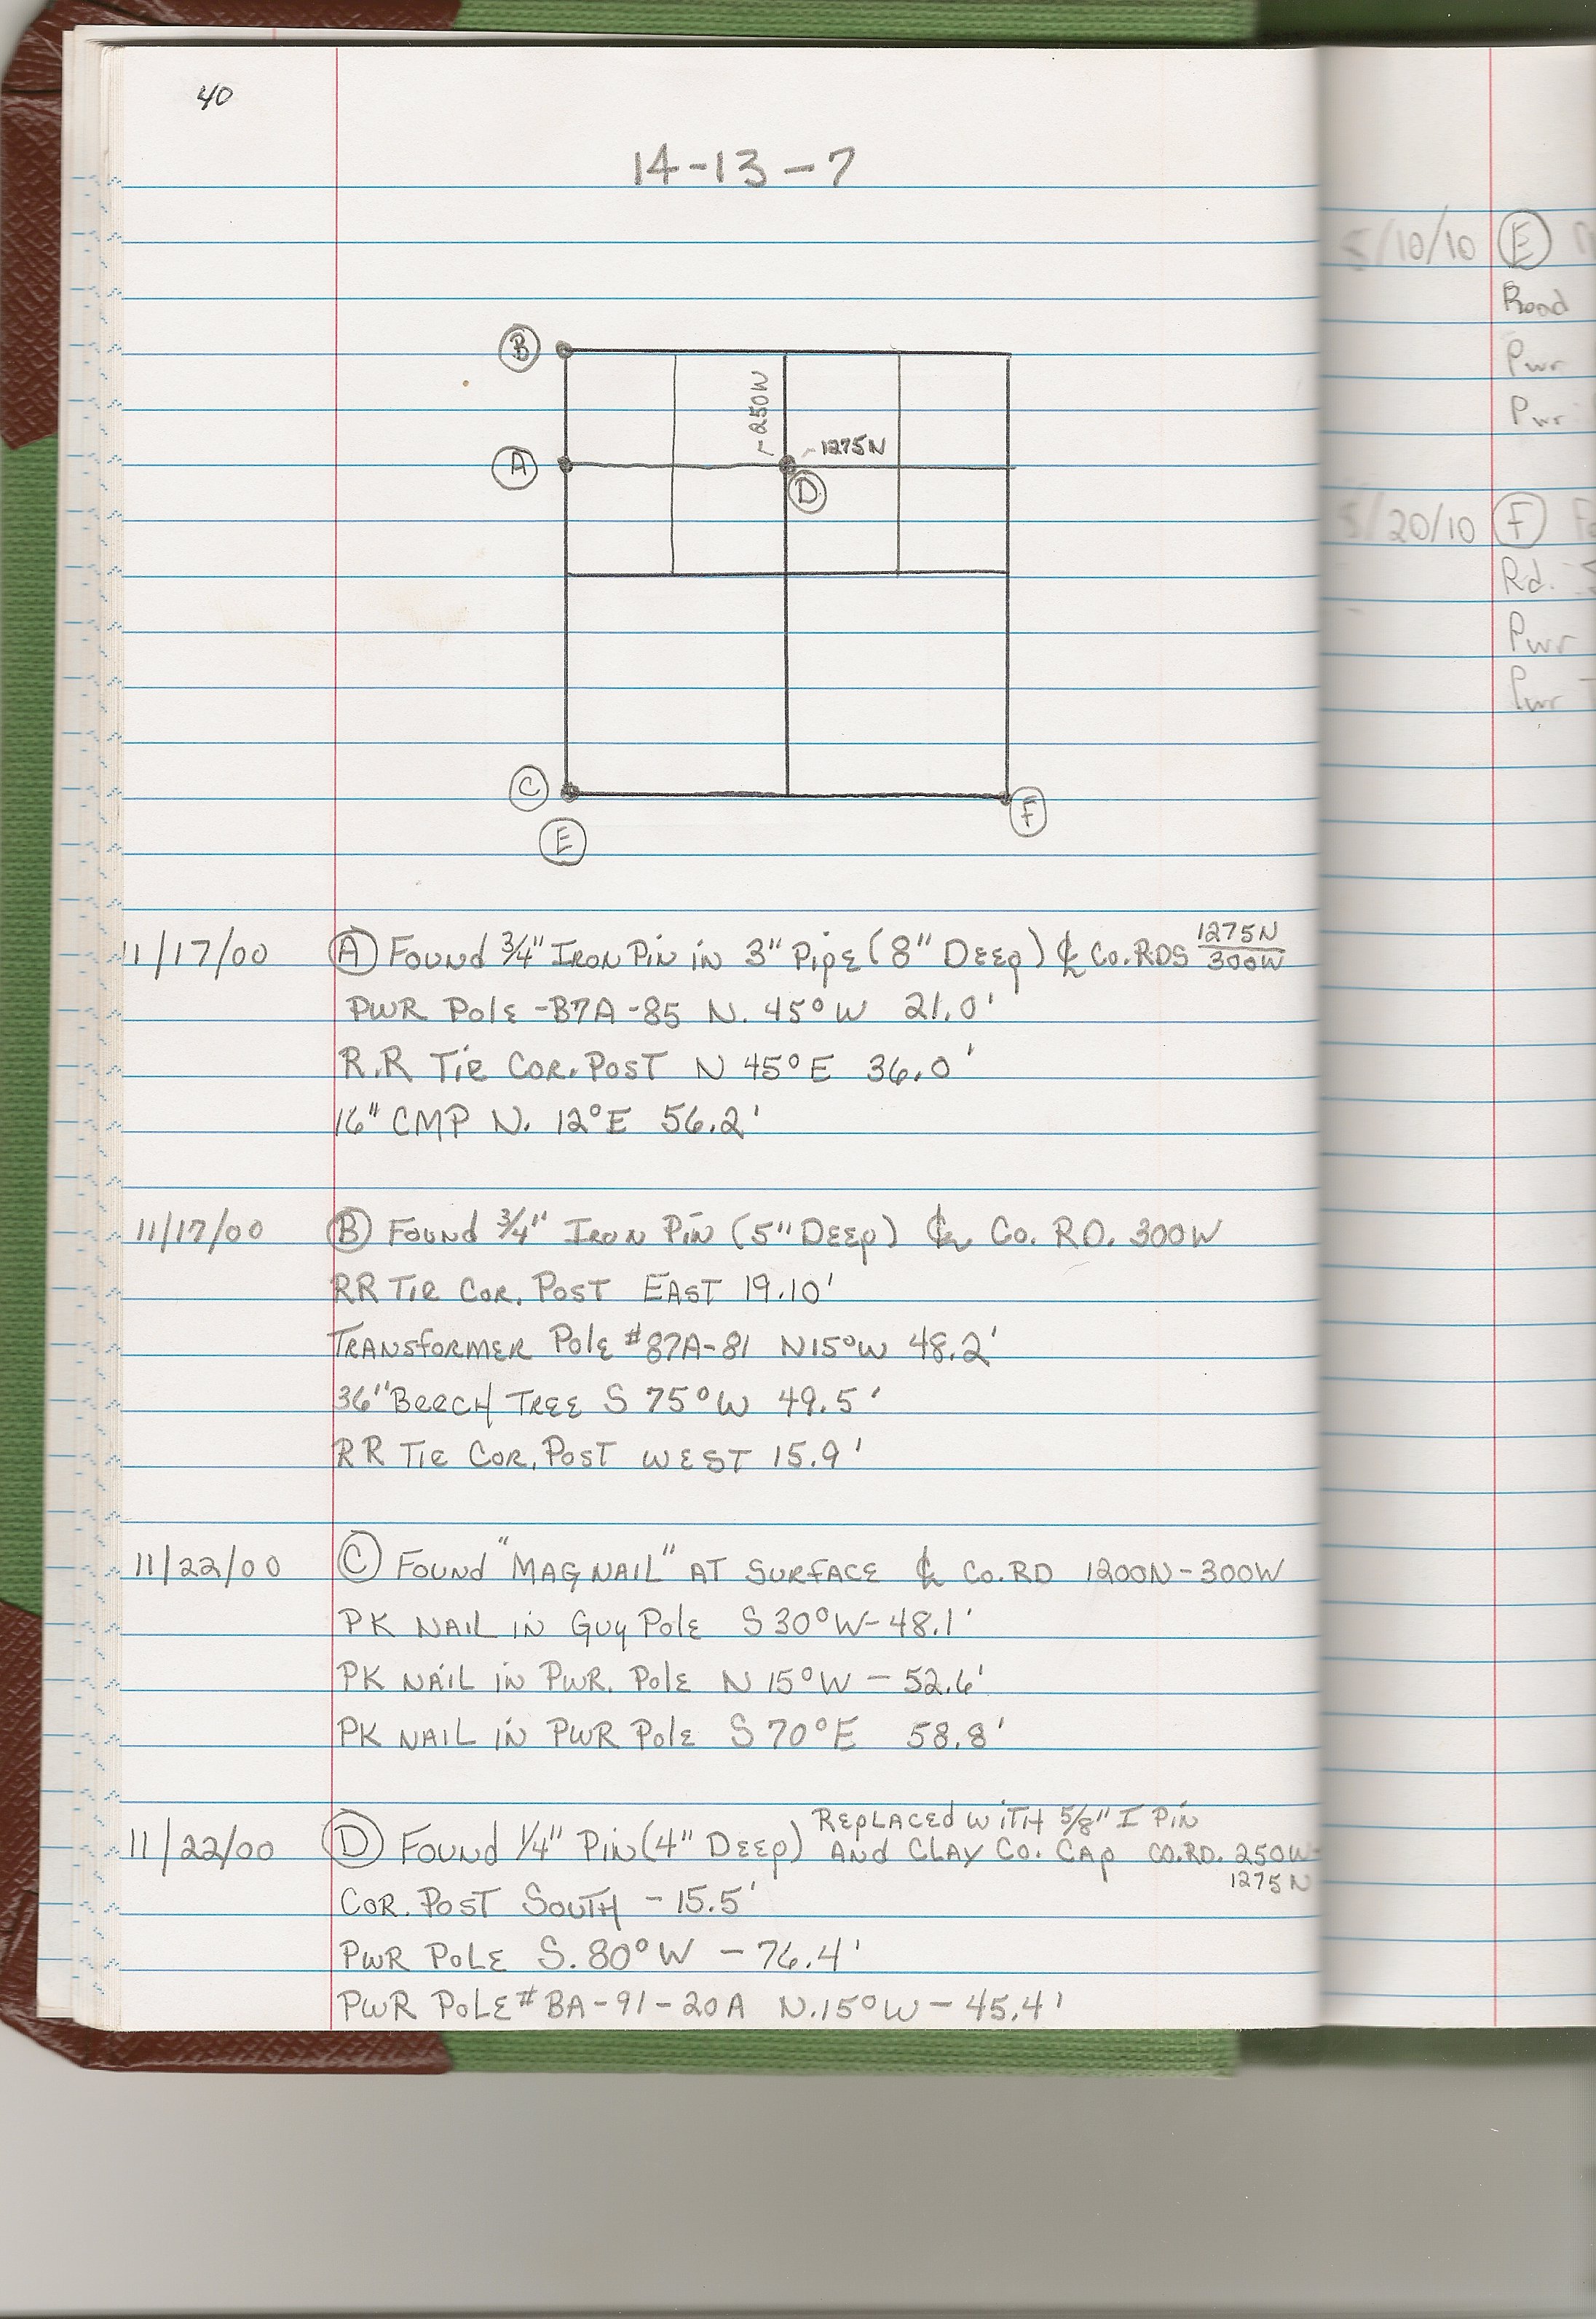 40
14-13-7
B
250W
1275N
A
D
C
F
E
11/17/00 A Found 3/4" Iron Pin in 3" Pipe (8" Deep) ℄ Co. RDS 1275N/300W
PWR Pole -B7A-85 N. 45° W 21.0'
R.R Tie Cor. Post N 45° E 36.0'
16" CMP N. 12° E 56.2'
11/17/00 B Found 3/4" Iron Pin (5" Deep) ℄ Co. RD. 300W
RR Tie Cor. Post EAST 19.10'
Transformer Pole #87A-81 N15°W 48.2'
36" Beech Tree S 75° W 49.5'
RR Tie Cor. Post WEST 15.9'
11/22/00 C Found "MAG NAIL" AT SURFACE ℄ Co. RD 1200N-300W
PK NAIL in Guy Pole S 30° W-48.1'
PK NAIL in PWR. Pole N 15° W - 52.6'
PK NAIL in PWR Pole S 70° E 58.8'
11/22/00 D Found 1/4" Pin (4" Deep) Replaced with 5/8" I Pin
And Clay Co. Cap Co. RD. 250W-
1275N
Cor. Post South - 15.5'
PWR Pole S. 80° W - 76.4'
PWR Pole # BA-91-20A N. 15° W - 45.4'
5/10/10 E
Road
Pwr
Pwr
5/20/10 F
Rd.
Pwr
Pwr